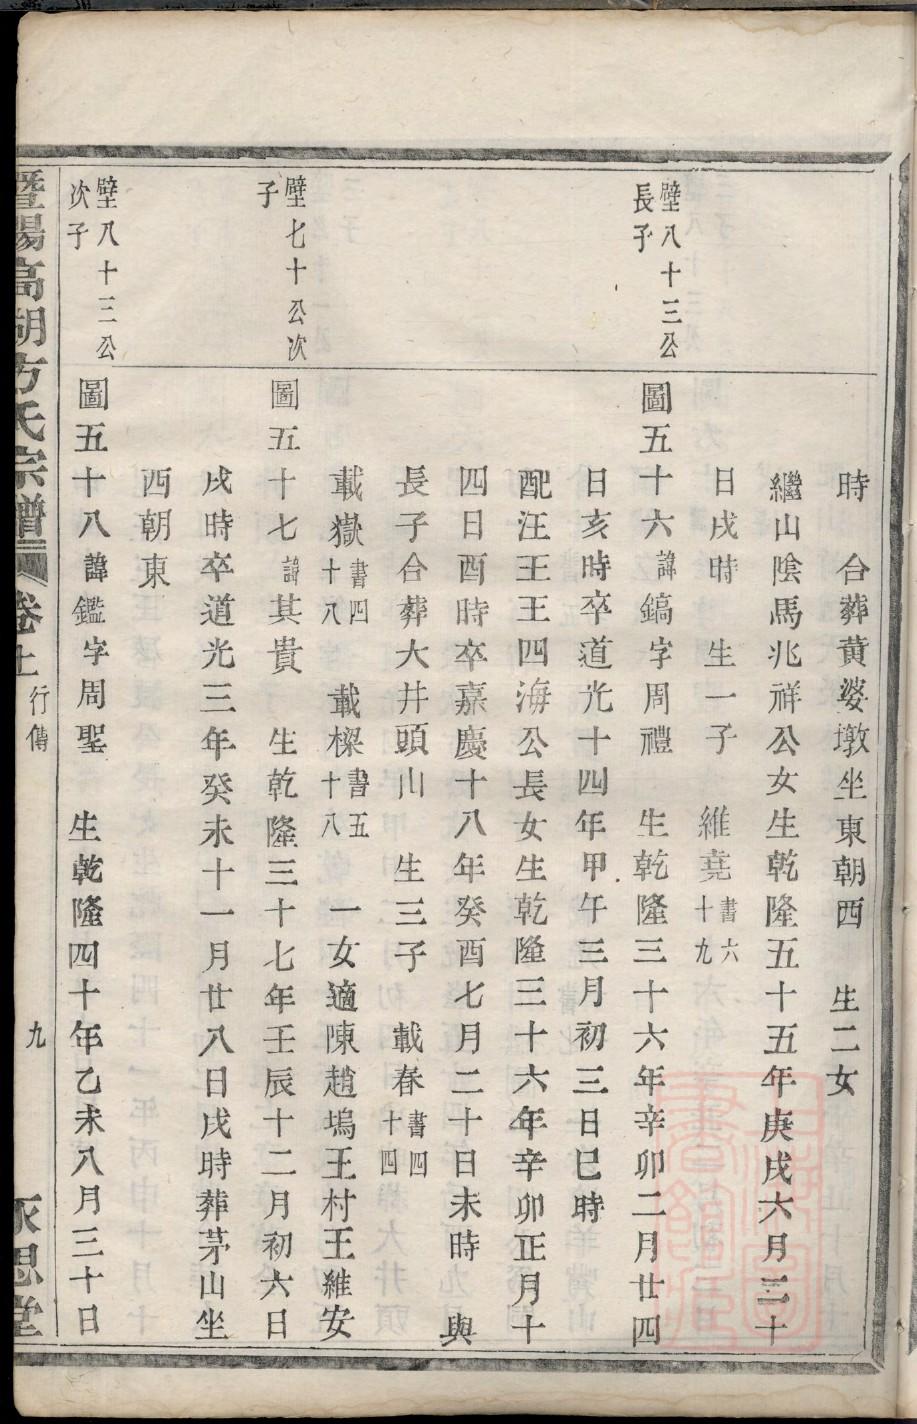 時　合葬黃婆墩坐東朝西　生二女
繼山陰馬兆祥公女生乾隆五十五年庚戌六月三十
日戌時　生一子　維堯書六十九
壁八十三公長子
圖五十六諱鎬字周禮　生乾隆三十六年辛卯二月廿四
日亥時卒道光十四年甲午三月初三日巳時
配汪王王四海公長女生乾隆三十六年辛卯正月十
四日酉時卒嘉慶十八年癸酉七月二十日未時　與
長子合葬大井頭山　生三子　載春書四十四
載嶽書四十八　載樑書五十八　一女適陳趙塢王村王維安
壁七十公次子
圖五十七諱其貴　生乾隆三十七年壬辰十二月初六日
戌時卒道光三年癸未十一月廿八日戌時葬茅山坐
西朝東
壁八十三公次子
圖五十八諱鑑字周聖　生乾隆四十年乙未八月三十日
暨陽高湖方氏宗譜　卷十　行傳　九　永思堂